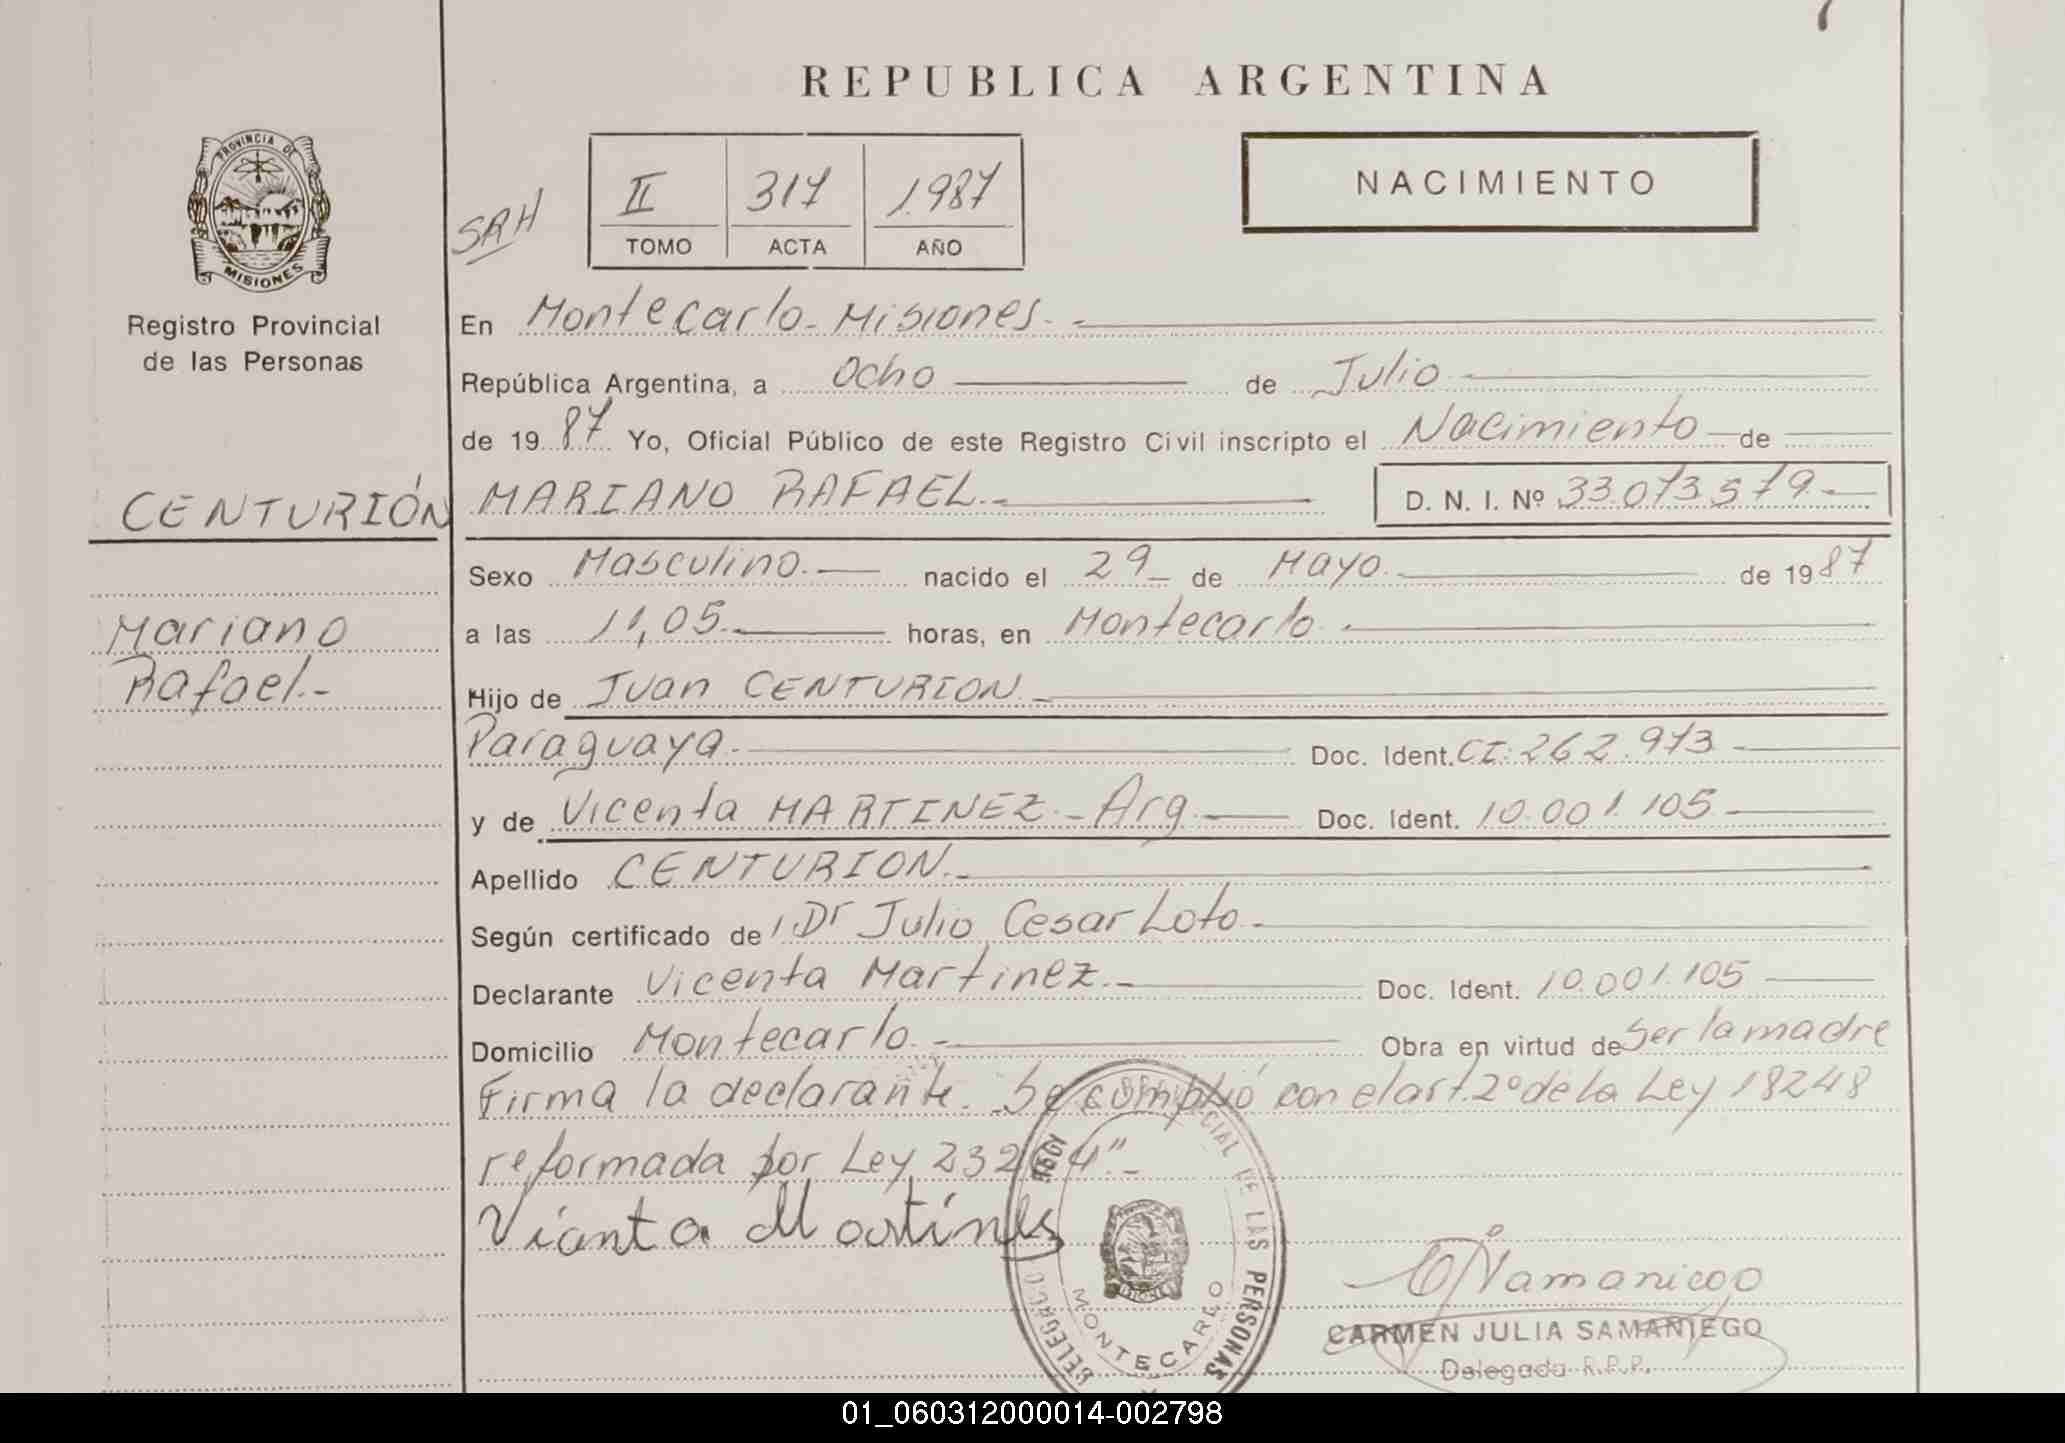 REPUBLICA ARGENTINA
PROVINCIA DE
MISIONES
Registro Provincial
de las Personas
SRH
II 317 1987
TOMO ACTA AÑO
NACIMIENTO
En Montecarlo - Misiones.-
República Argentina, a Ocho de Julio
de 1987 Yo, Oficial Público de este Registro Civil inscripto el Nacimiento de
CENTURIÓN MARIANO RAFAEL.- D. N. I. Nº 33.073.579.-
Mariano
Rafael.-
Sexo Masculino.- nacido el 29 de Mayo. de 1987
a las 11,05.- horas, en Montecarlo.
Hijo de Juan CENTURION.-
Paraguaya.- Doc. Ident. CI. 262.973
y de Vicenta MARTINEZ.- Arg.- Doc. Ident. 10.001.105
Apellido CENTURION.-
Según certificado de Dr Julio Cesar Loto.-
Declarante Vicenta Martinez.- Doc. Ident. 10.001.105
Domicilio Montecarlo.- Obra en virtud de Ser la madre
Firma la declarante. Se cumplió con el art. 2º de la Ley 18248
reformada por Ley 232 4".-
Vicenta Martines
DE LAS PERSONAS
MONTECARLO
CARMEN JULIA SAMANIEGO
Delegada R.P.P.
01_060312000014-002798